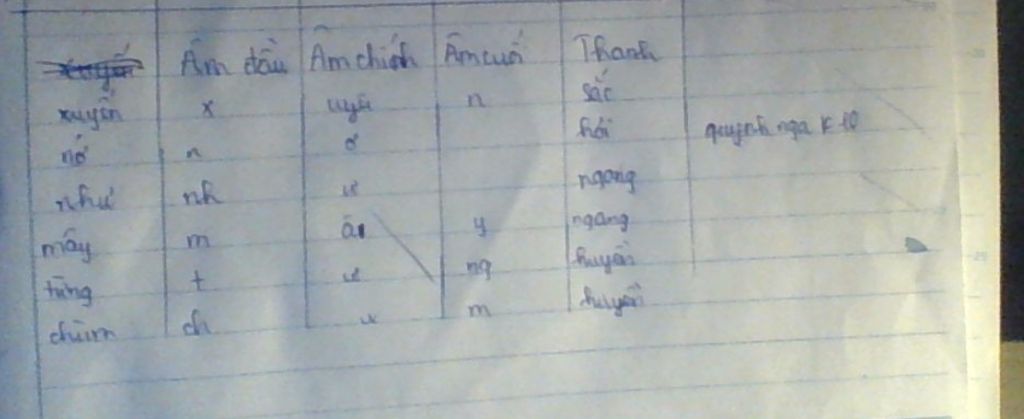 Âm đầu Âm chính Âm cuối Thanh
xuyến x uyê n sắc
nở n ơ hỏi quỳnh nga K 10
như nh ư ngang
mây m â y ngang
từng t ư ng huyền
chùm ch u m huyền